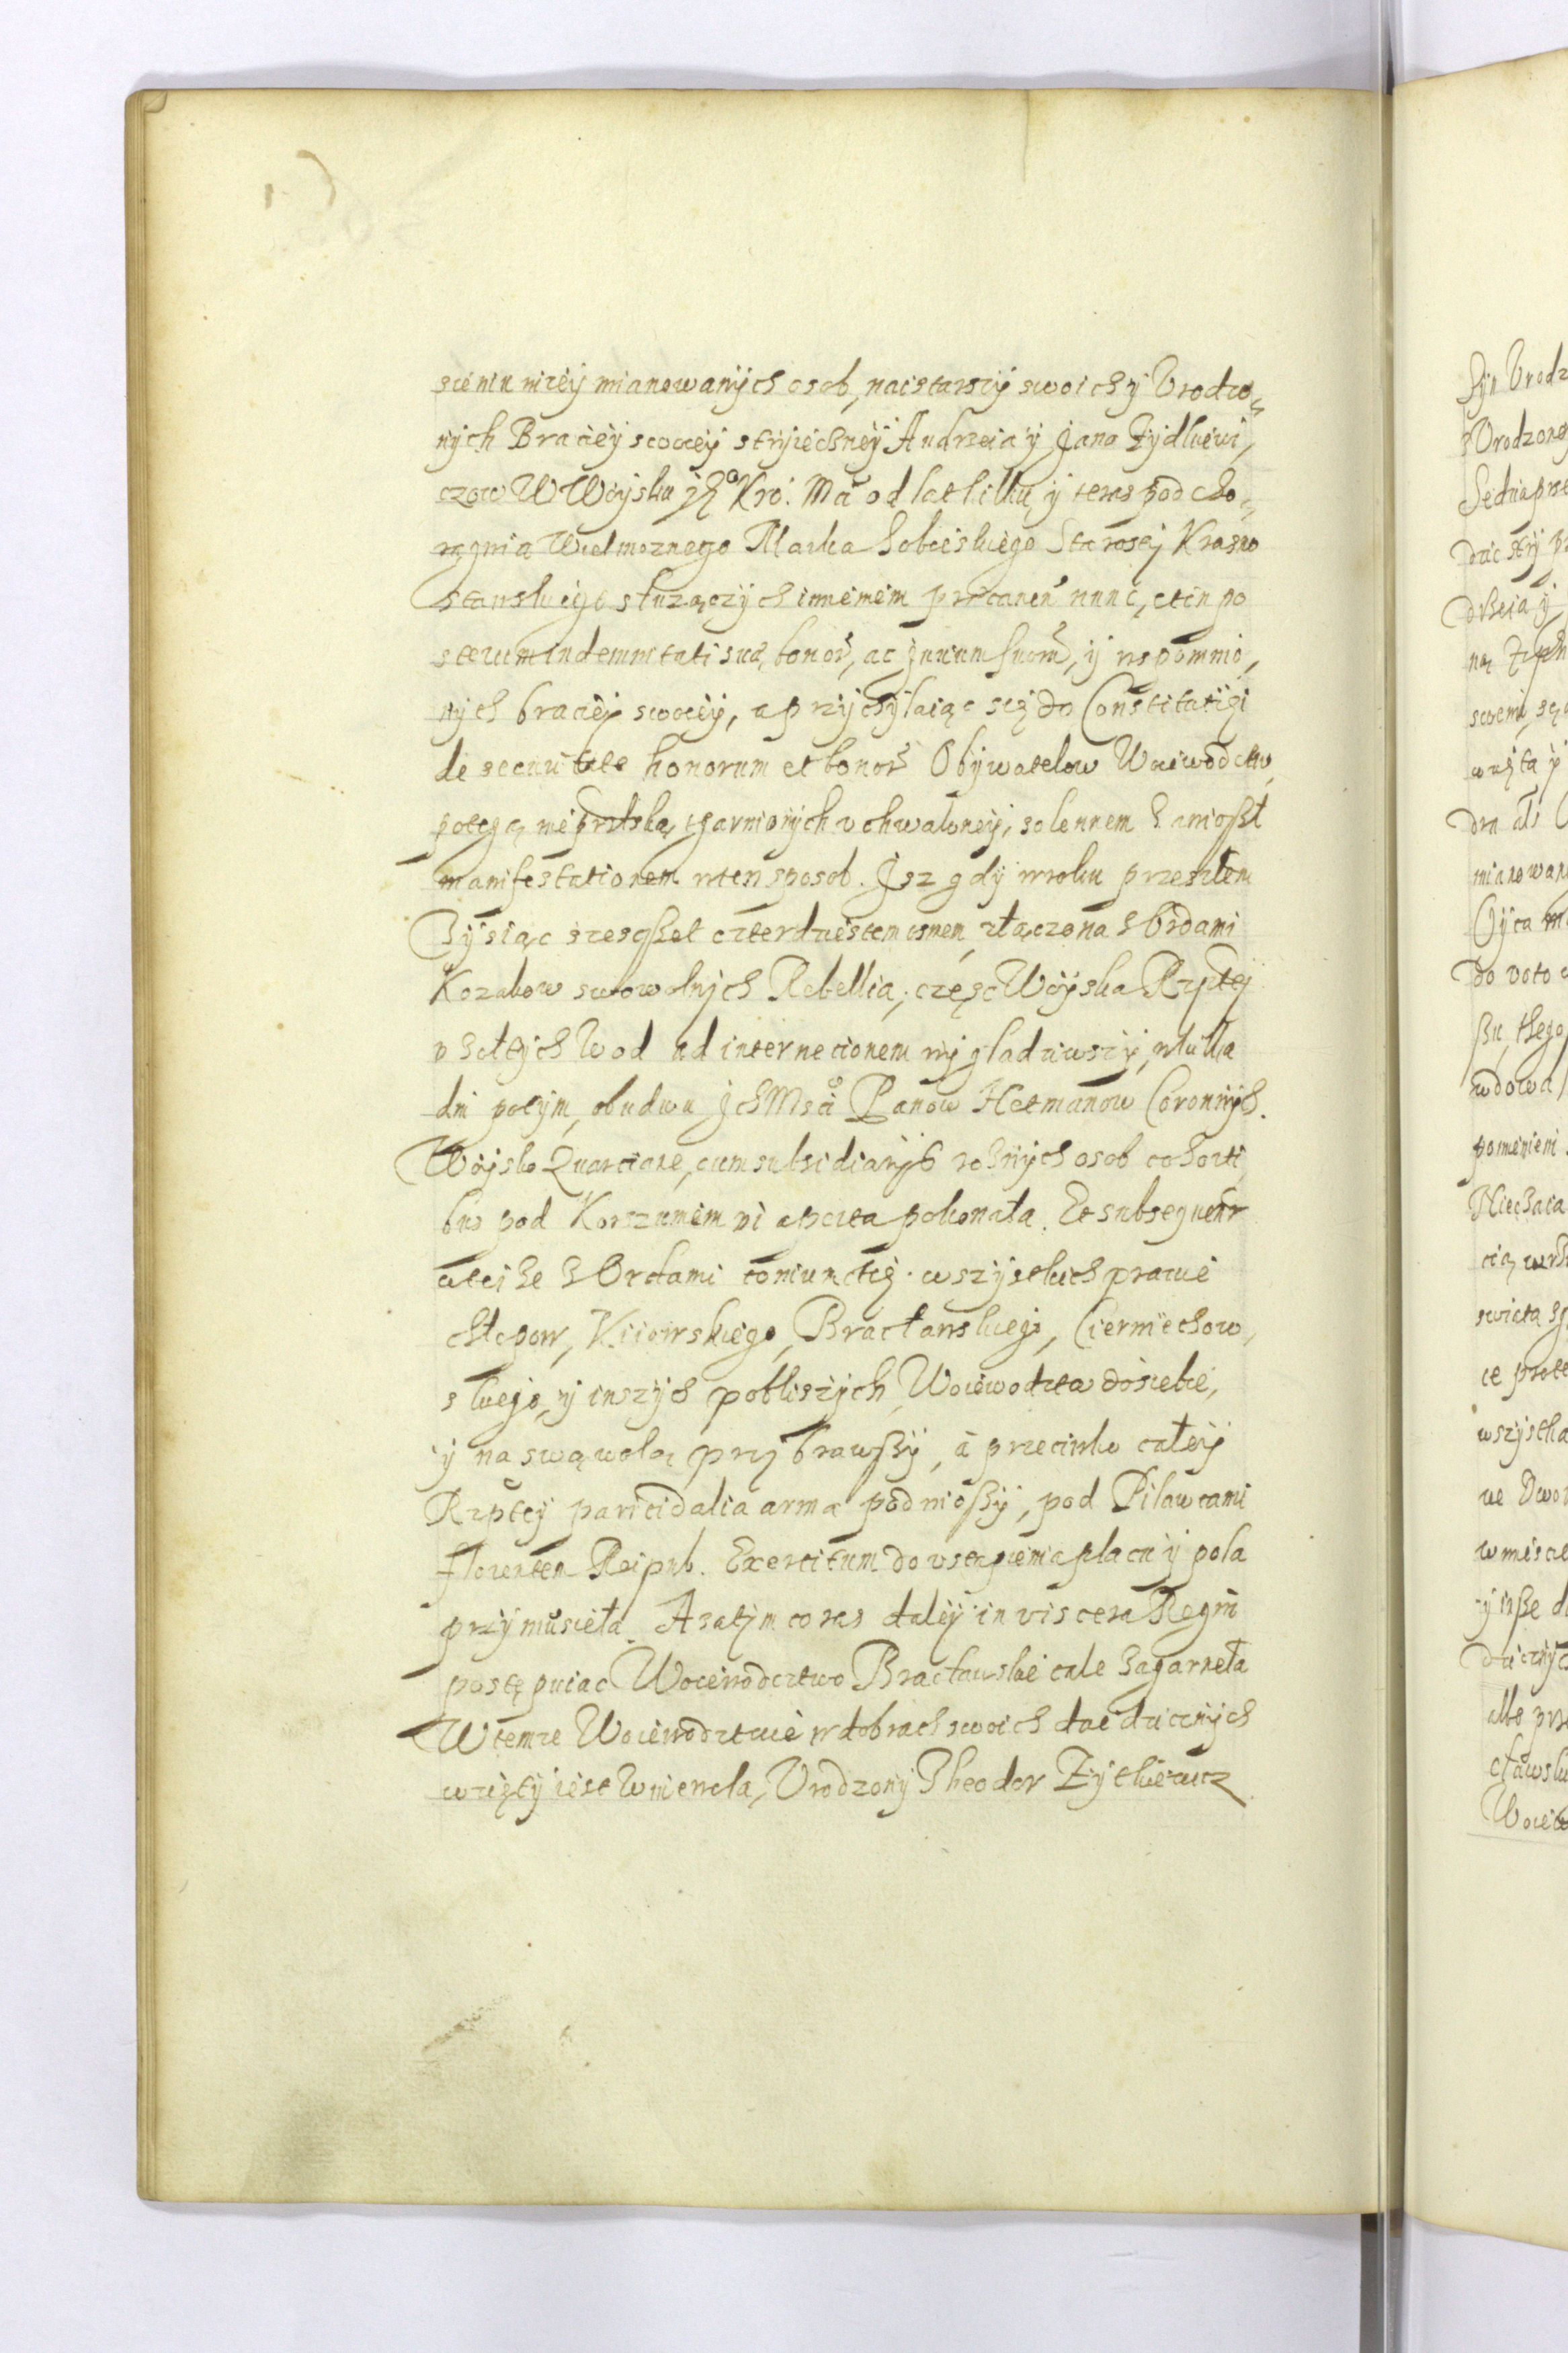 scieniu nizey mianowanych osob, naistarszy swoich y Vrodzo-
nych Braciey swoiey stryieckney Andrzeia y Jana Zydkiewi-
czow W Woysku JKo Kro: Ma od lat kilku, y teras pod cho-
rągwią Wielmoznego Marka Sobieskiego Starosty Krasno
stawskiego słuzących imieniem przitaneń nunc, et in po
sterum indemnitati sua, bonor, ac Jurium suorum, y wspomnio-
nych braciey swoiey, a przychylaiąc się do Constitutiei
de securitate honorum et bonor Obywatelow Woiewodztw
potęgą nieprzlską, ogarnionych vchwaloney, solennem Zaniosł
manifestationem w ten sposob. Jsz gdy w roku przeszłem
Tysiąc szescset czterdziestem osmem, złączona z Ordami
Kozakow swowolnych Rebellia, częsc Woyska Rzptey
v Zołtych Wod ad internecionem wygładziwszy, w kilka
dni potym, obudwu JchMsci Panow Hetmanow Coronnych.
Woysko Quartiane, cum subsidiarys roznych osob cohorti
bus pod Korszuniem vi aperta pokonała. Et subsequenter
taż z Ordami coniunctią. wszystkich prawie
chłopow, Kiiowskiego, Bracławskiego, Czerniechow-
skiego, y inszych pobliszych Woiewodztw do siebie,
y na swąwolą przybrawszy, a przeciwko całey
Rzptey paricidalia arma podniosszy, pod Pilawcami
florentem Reipub. Exercitum do vstąpienia placu y pola
przymusieła. A zatym coras daley in viscera Regni
postępuiac Woiewodcztwo Bracławskie cale Zagarneła
W temze Woiewodztwie w dobrach swoich dziedzicznych
wzięty iest W niewola, Vrodzony Theodor Zytkiewicz